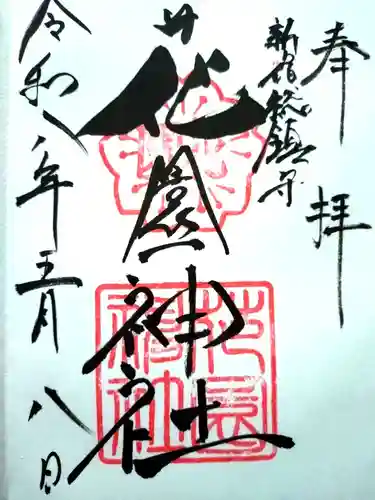 奉拝
新宿総鎮守
花園神社
令和八年五月八日
花園神社